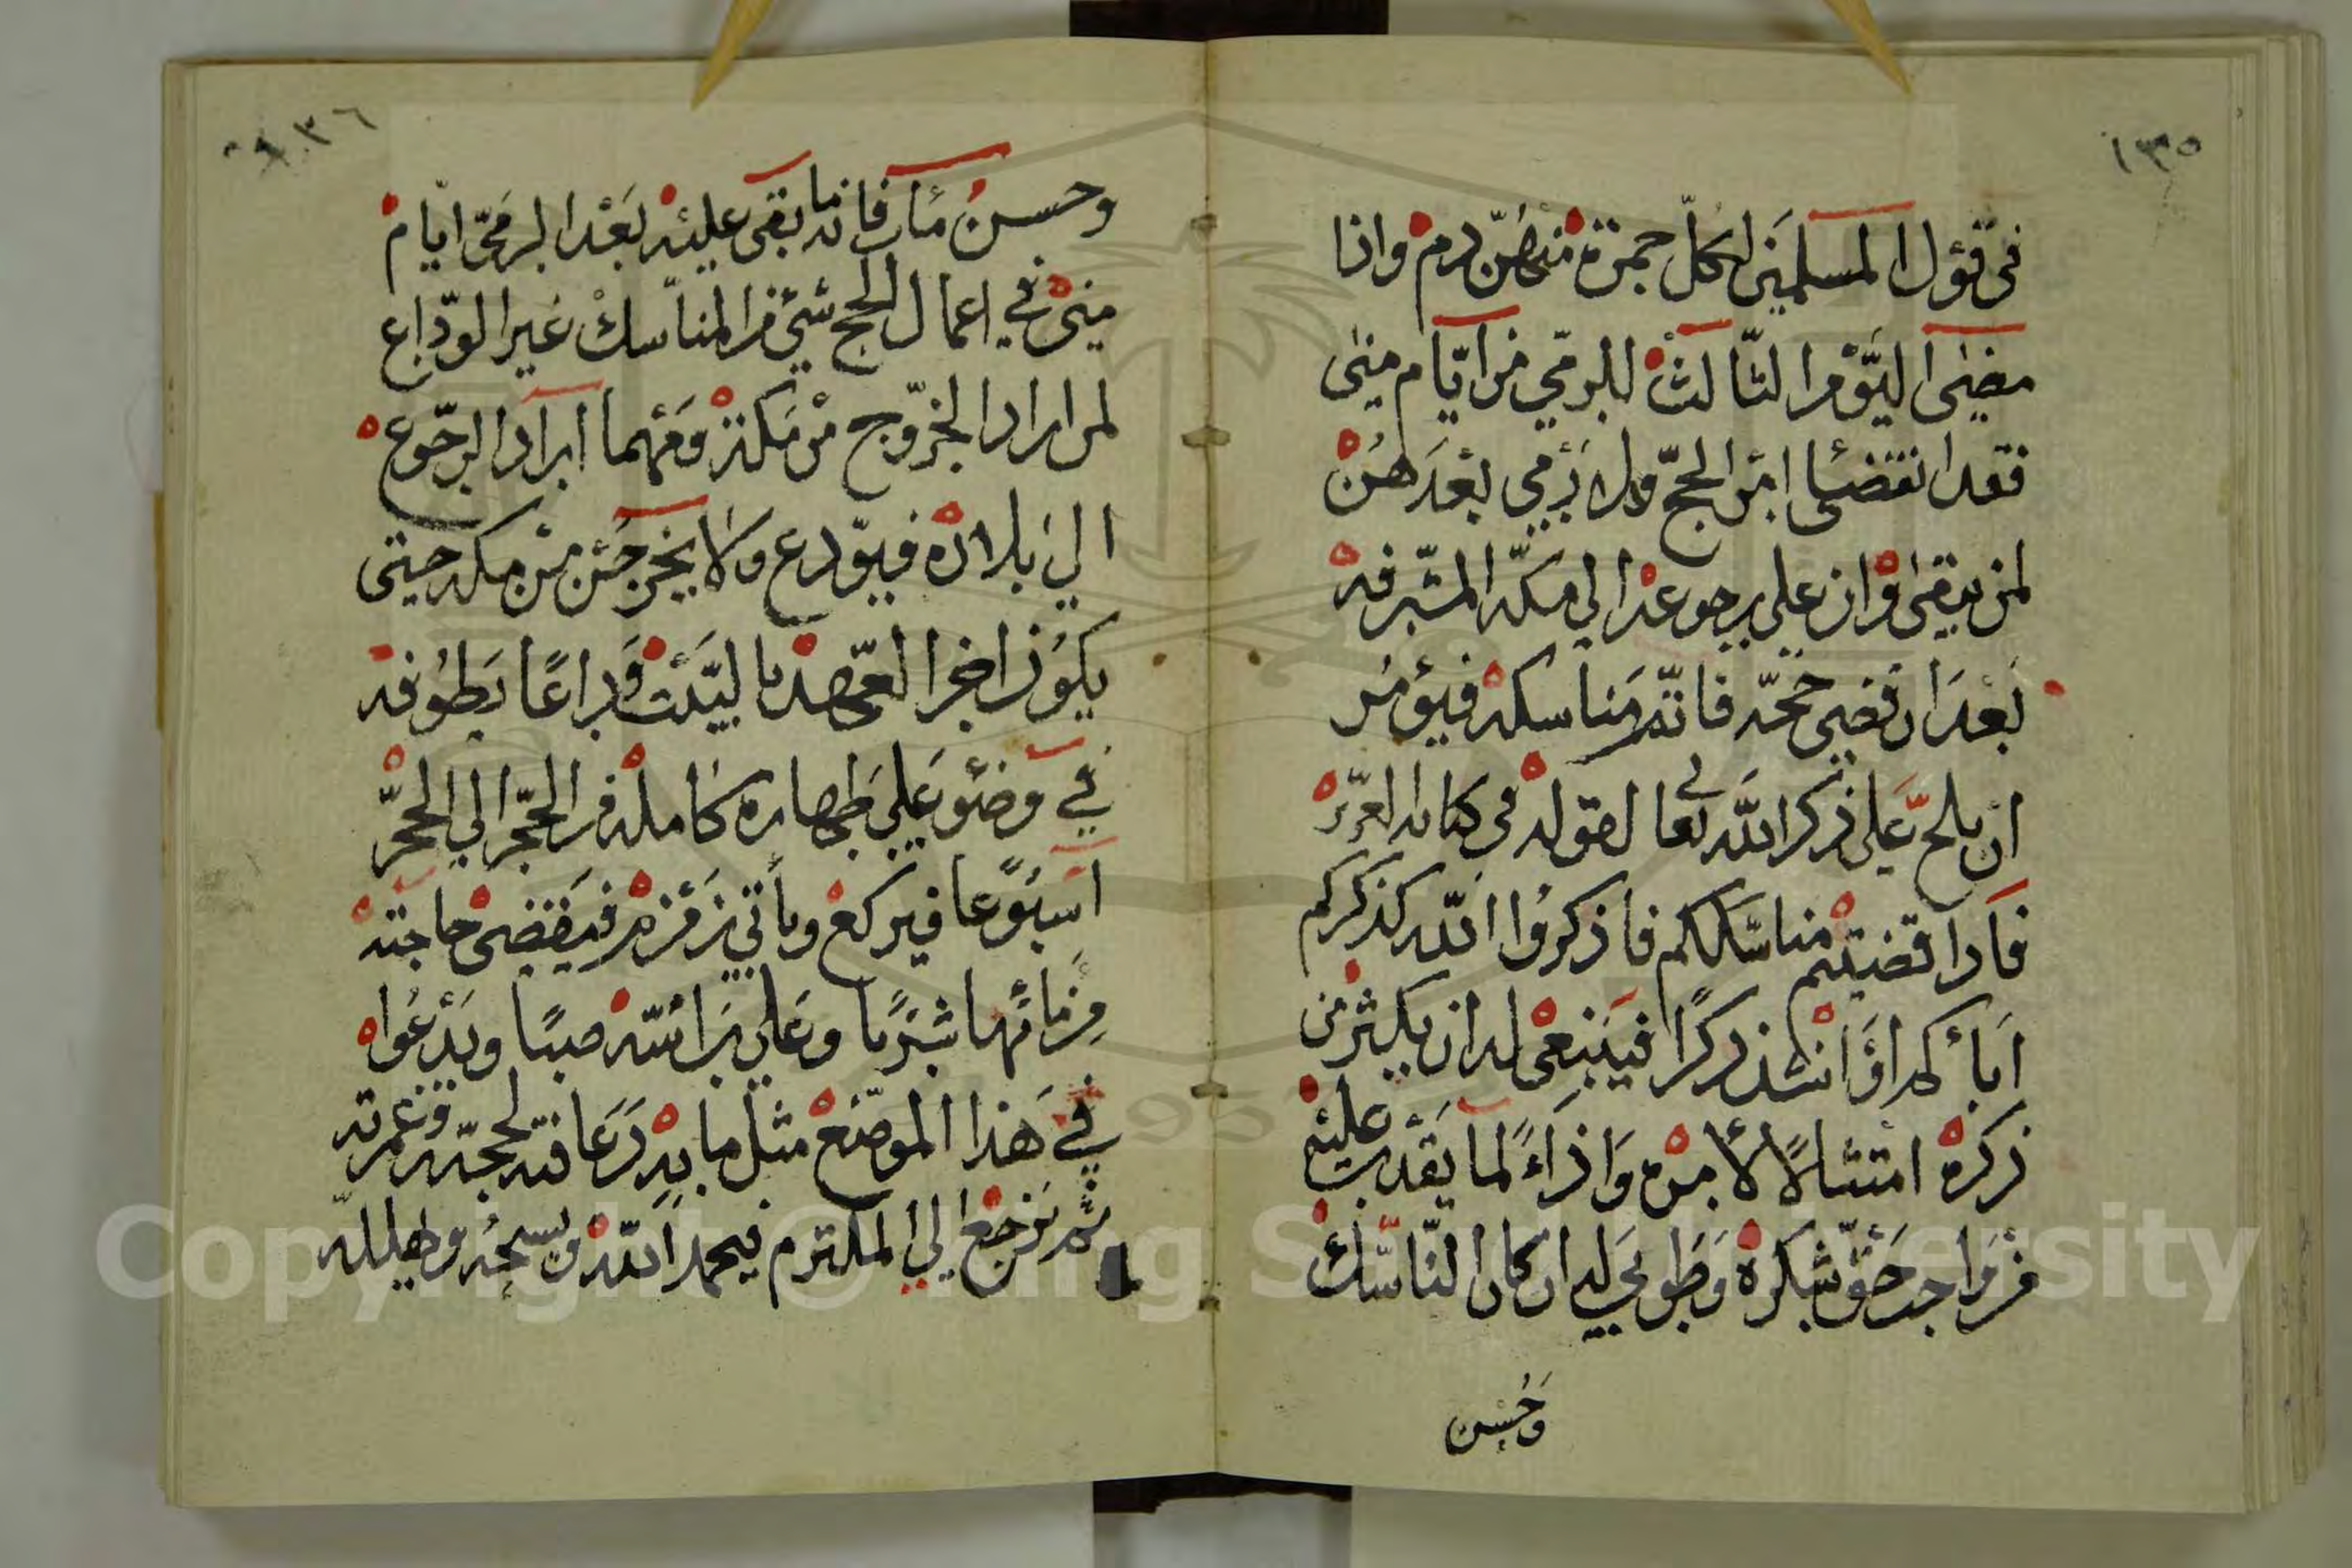 ١٣٥
في قول المسلمين لكل جمرة منهن دم واذا
مضى اليوم الثالث للرمي من ايام منى
فقد انقضىا امر الحج ولا يرمي بعدهن
لمن يبقى وان على يرجوعه الى مكة المشرفة
بعد ان قضى حجه فاتم مناسكه فيؤمر
ان يلح على ذكر الله تعالى لقوله في كتابه العزيز
فاذا قضيتم مناسككم فاذكروا الله كذكركم
اباءكم او اشد ذكرا فينبغي له ان يكثر من
ذكره امتثالا لامره واداء لما يقدر عليه
من واجب حق شكره وطوبى له ان كان الناسك
وحسن
١٣٦
وحسن مئاب فانه ما بقى عليه بعد الرمي ايام
منى في اعمال الحج شيء من المناسك غير الوداع
لمن اراد الخروج من مكة ومهما اراد الرجوع
الى بلاده فيودع ولا يخرجن من مكه حتى
يكون اخر العهد بالبيت وداعا يطوفه
في وضوء على طهارة كامله من الحجر الى الحجر
اسبوعا فيركع ويأتي زمزم فيقضى حاجته
من مائها شربا وعلى رأسه صبا ويدعوا
في هذا الموضع مثل ما به دعا فيه لحجه وعمرته
ثم يرجع الى الملتزم فيحمد الله ويسبحه ويهلله
Copyright © King Saud University